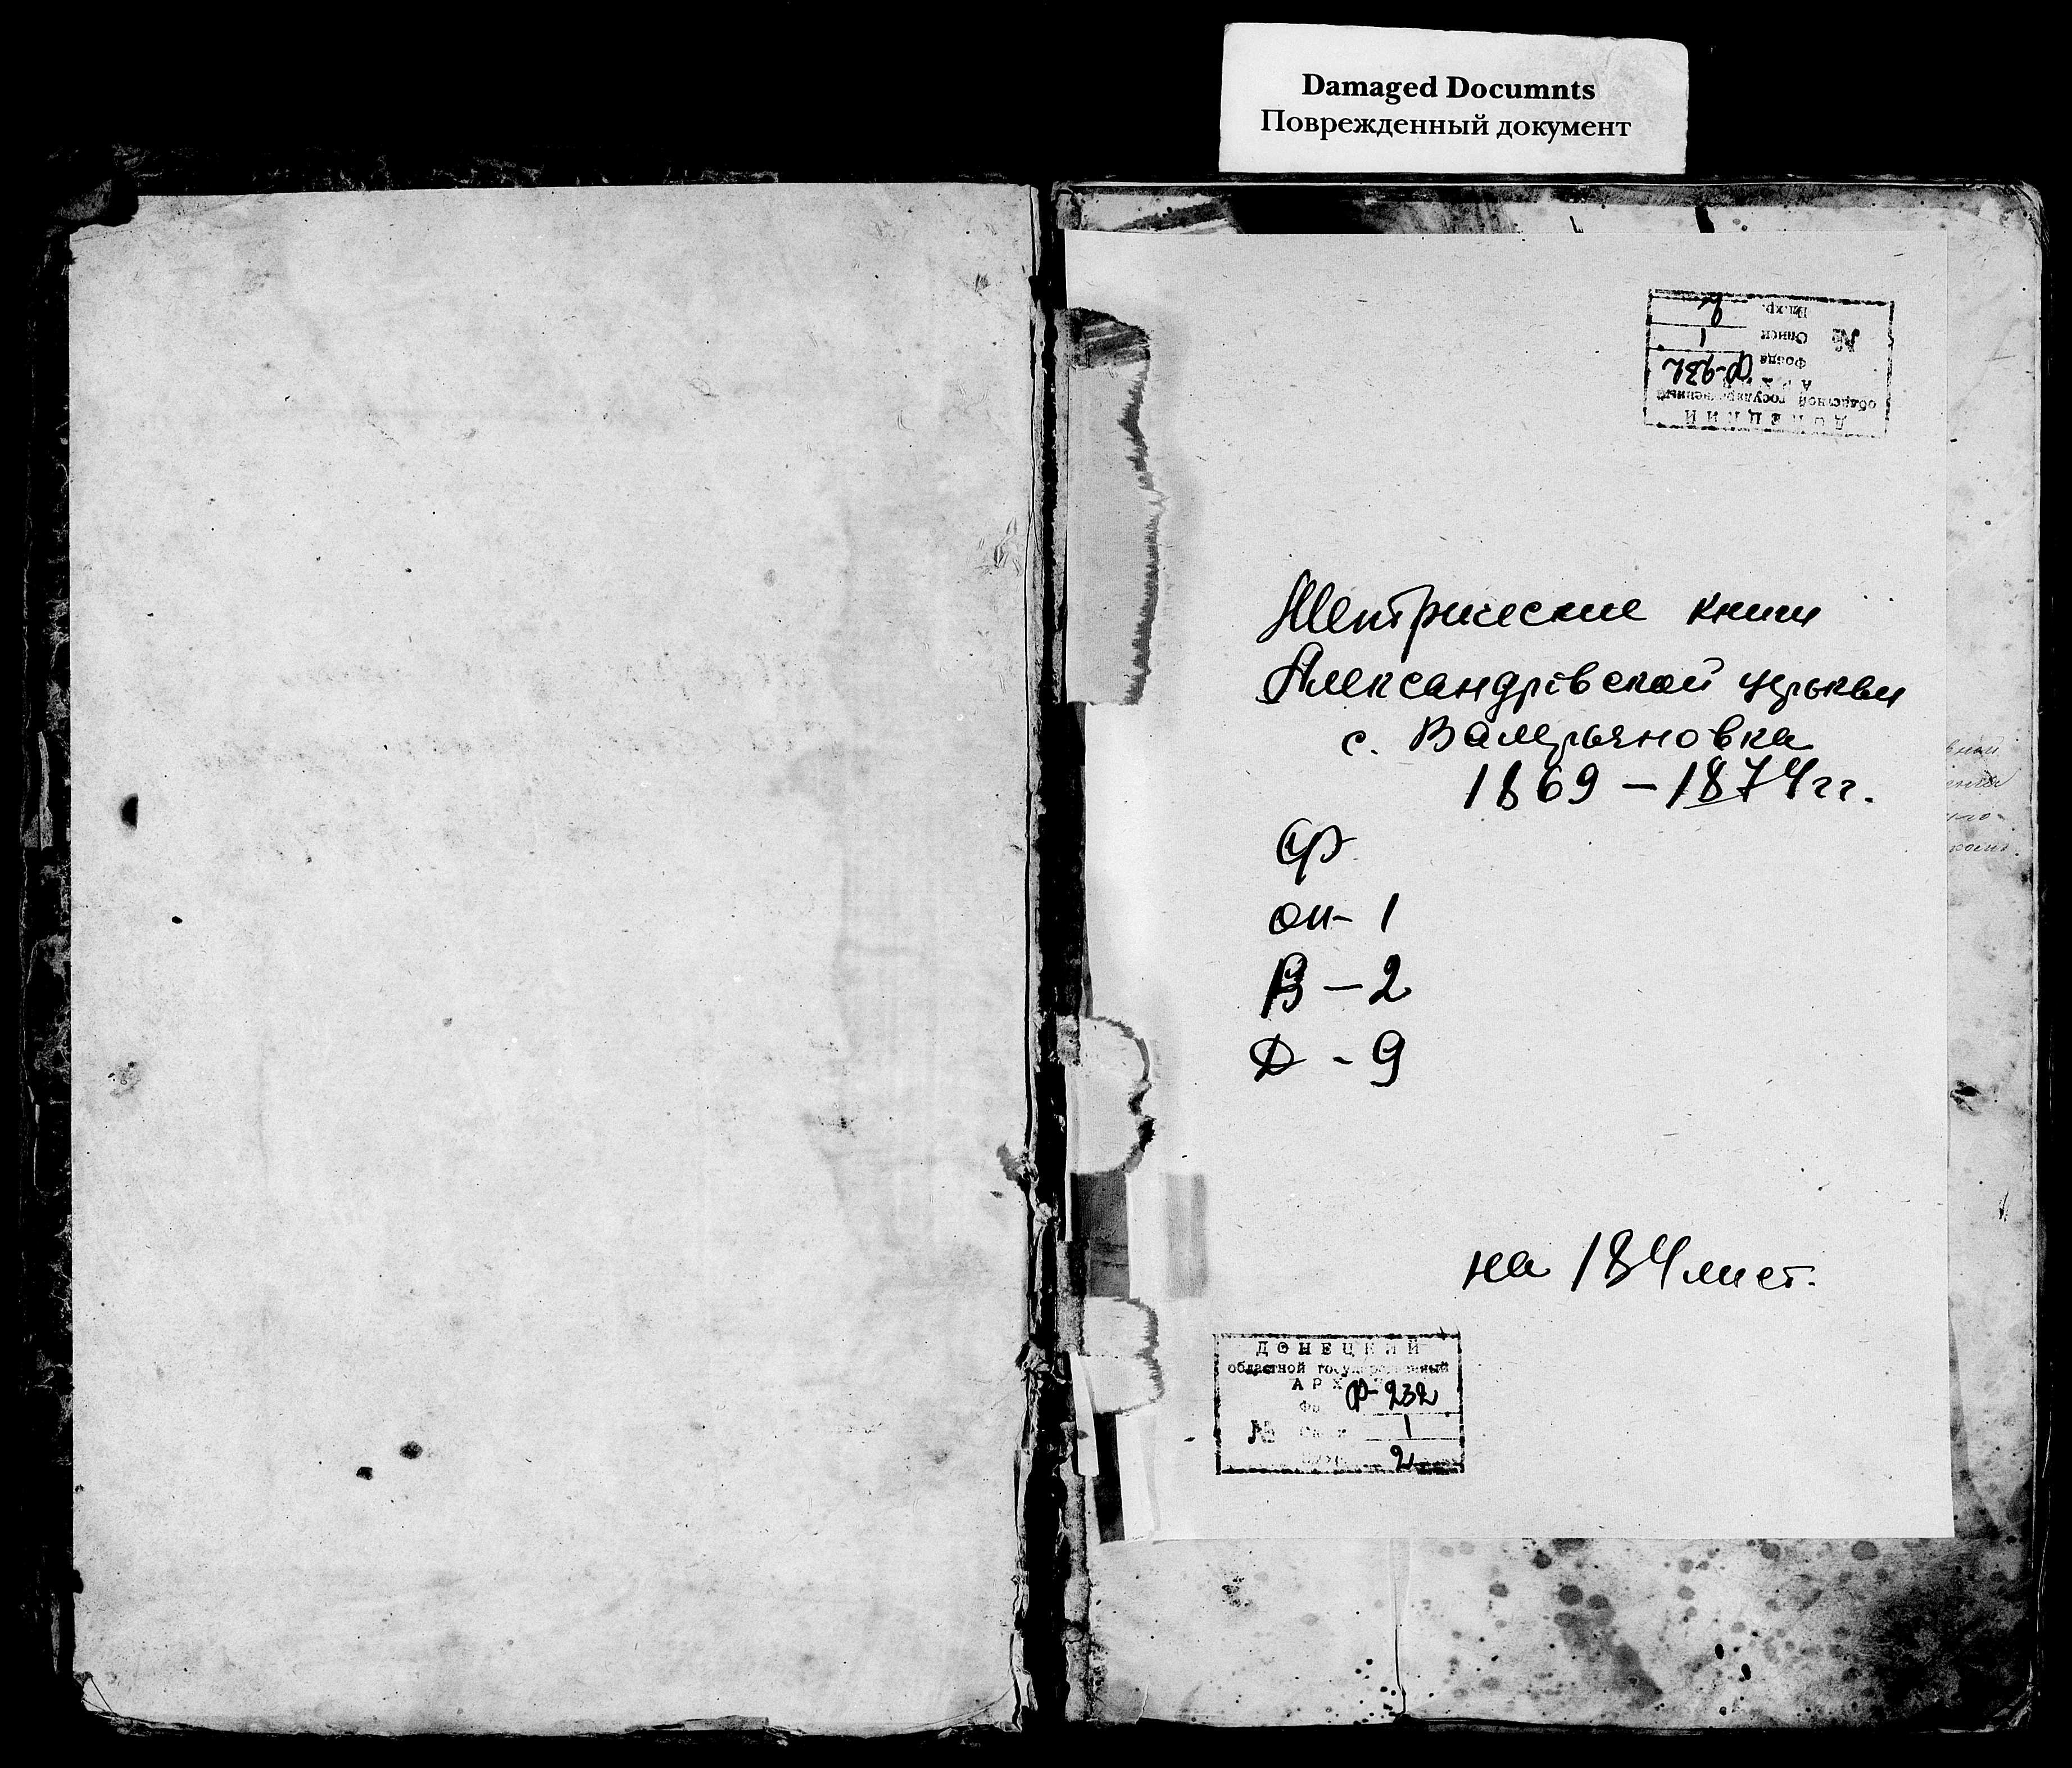 Damaged Documnts
Поврежденный документ
ДОНЕЦКИЙ
областной государственный
АРХИВ
Фонда Ф-232
№ Описи 1
Ед.хр. 2
Метрические книги
Александрівской церькви
с. Валерьяновка
1869 – 1874 гг.
Ф
оп- 1
В – 2
Д - 9
на 184 лист.
ДОНЕЦКИЙ
областной государственный
АРХ
Ф-232
№ 1
2